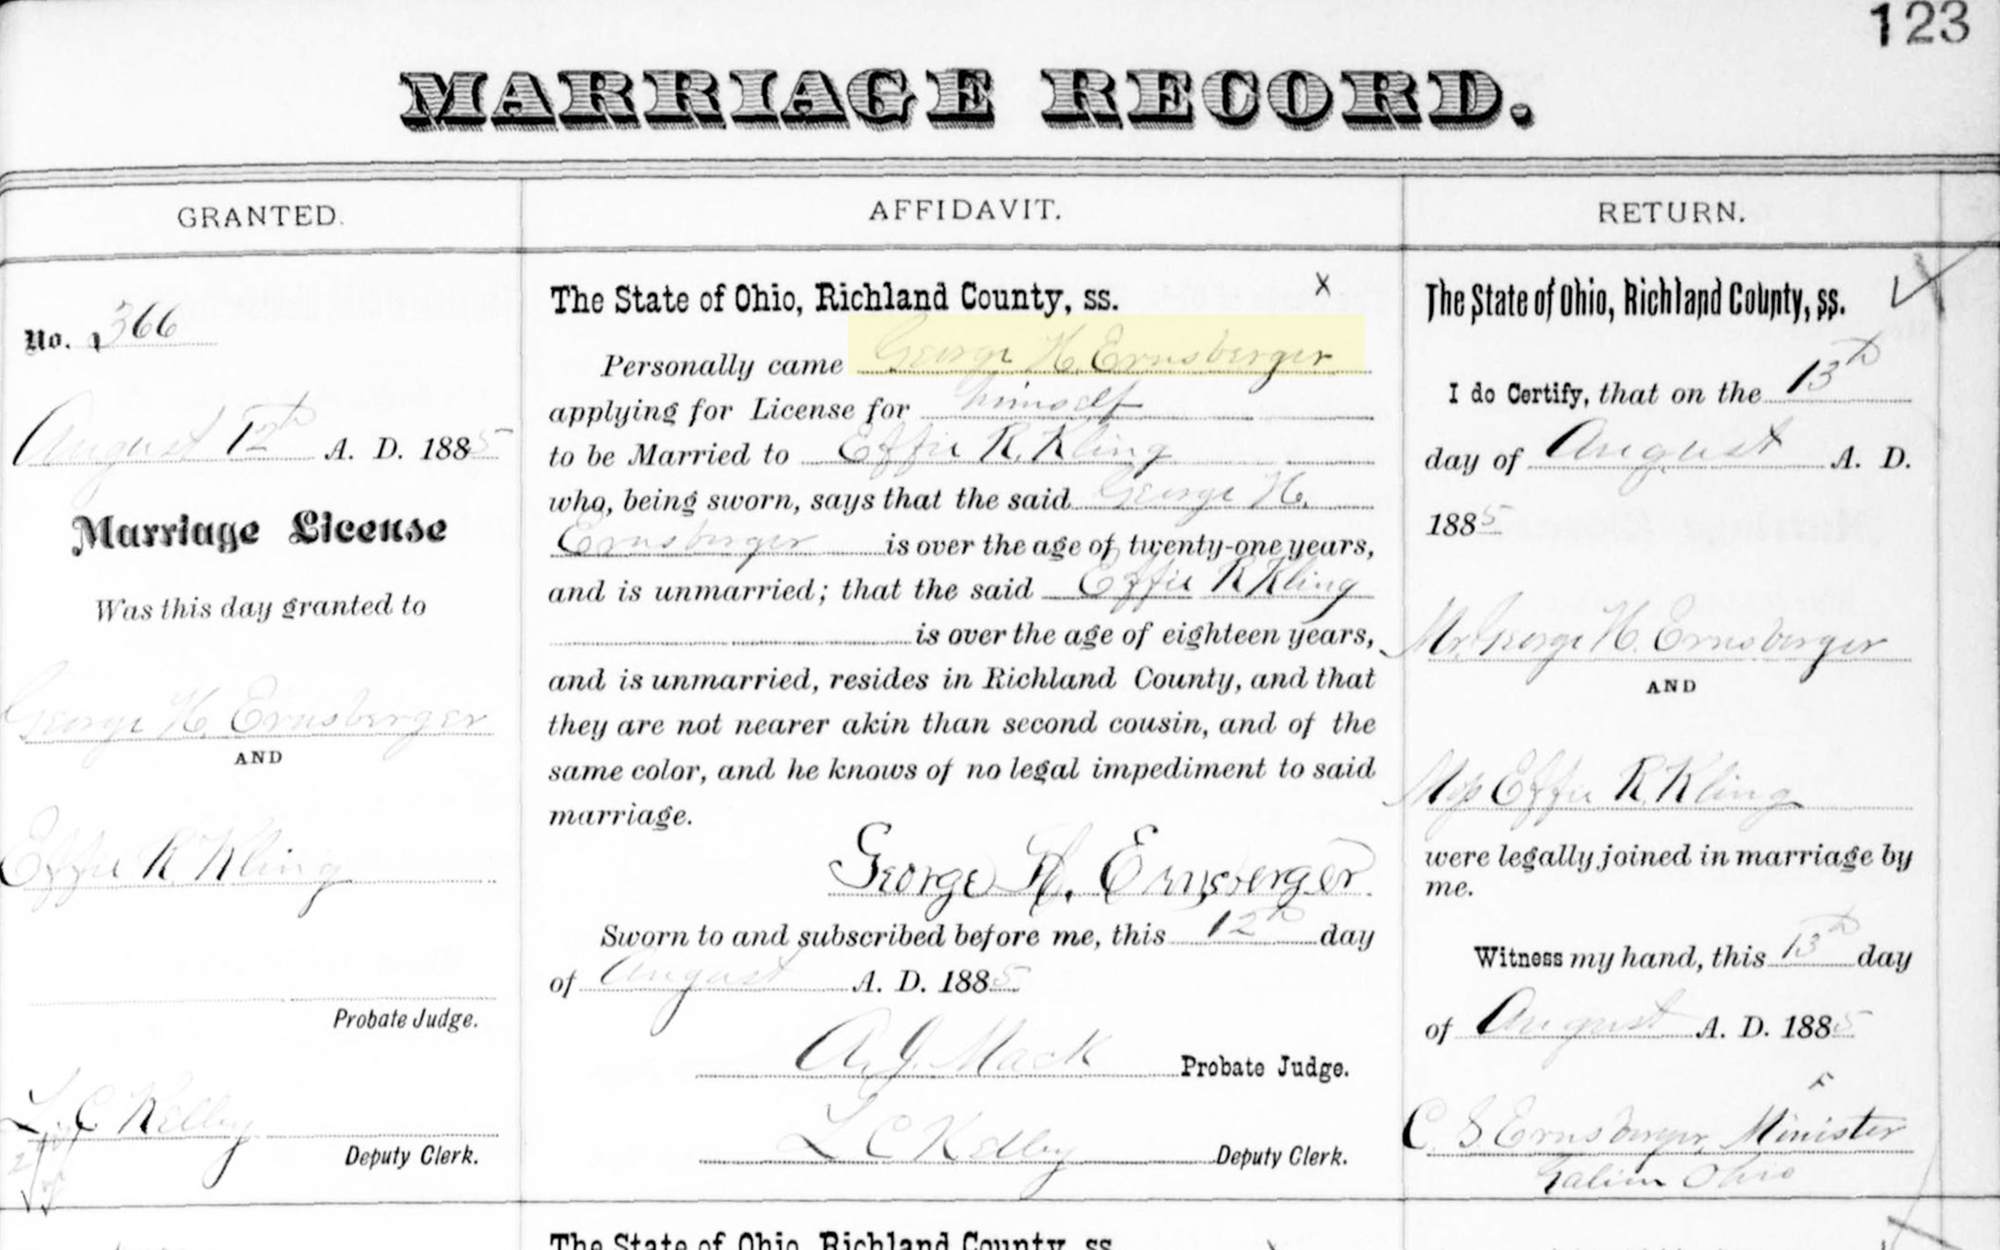 123
MARRIAGE RECORD.
GRANTED.
No. 366
August 12th A. D. 1885
Marriage License
Was this day granted to
George H. Ernsberger
AND
Effie R Kling
Probate Judge.
L. C Kelley
Deputy Clerk.
AFFIDAVIT.
The State of Ohio, Richland County, ss. x
Personally came George H. Ernsberger
applying for License for himself
to be Married to Effie R. Kling
who, being sworn, says that the said George H.
Ernsberger is over the age of twenty-one years,
and is unmarried; that the said Effie R Kling
is over the age of eighteen years,
and is unmarried, resides in Richland County, and that
they are not nearer akin than second cousin, and of the
same color, and he knows of no legal impediment to said
marriage.
George H. Ernsberger
Sworn to and subscribed before me, this 12th day
of August A. D. 1885
A. J. Mack Probate Judge.
L C Kelley Deputy Clerk.
RETURN.
The State of Ohio, Richland County, ss.
I do Certify, that on the 13th
day of August A. D.
1885
Mr. George H. Ernsberger
AND
Miss Effie R Kling
were legally joined in marriage by
me.
Witness my hand, this 13th day
of August A. D. 1885
C. S Ernsberger, Minister
Ohio
The State of Ohio, Richland County, ss.